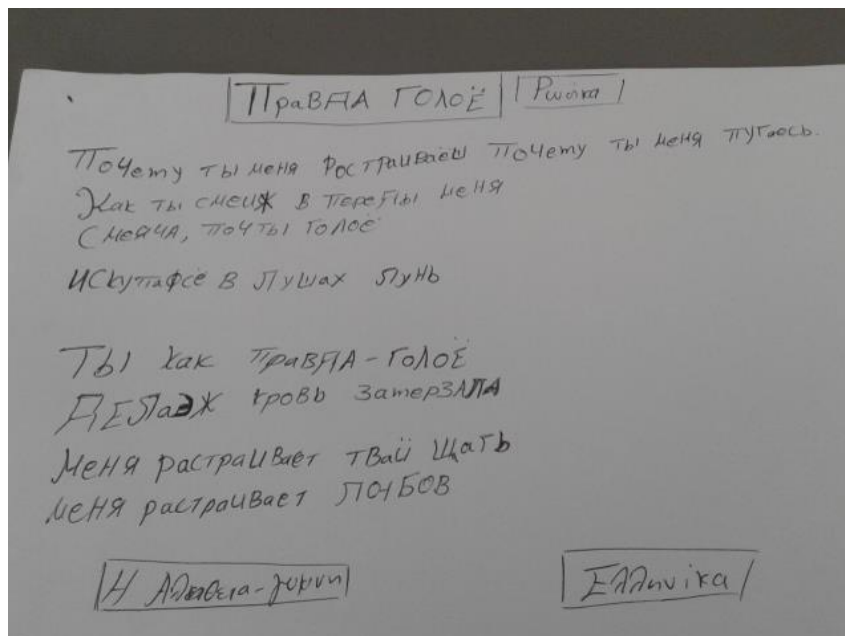 ПраВДА ГОЛОЁ Ρωσικα
ПОЧему ты меня Ростраиваеш Почему ты меня пугаесь.
Как ты смеиж в переды меня
Смеяча, почты голоё
Искупафсё в лушах лунь
ТЫ как праВДА-ГОЛОЁ
ДЕЛаэЖ кровь затерЗАЛА
Меня растраивает твай щать
меня растраивает ЛЮБОВ
Η Αλαθεια-γυμνη Ελληνικα